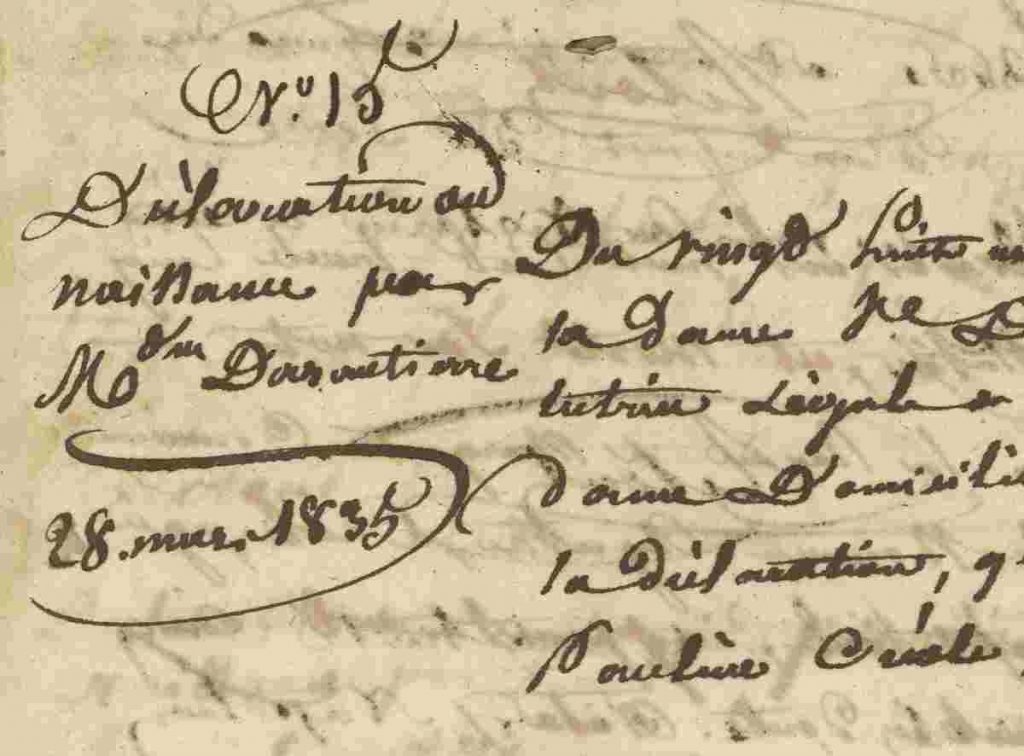 No. 15
Déclaration de
naissance par
Mdme
28. mars 1835
Du vingt huit
la dame
tutrice Légale
dame Domicili
la déclaration, q
Pauline Créole